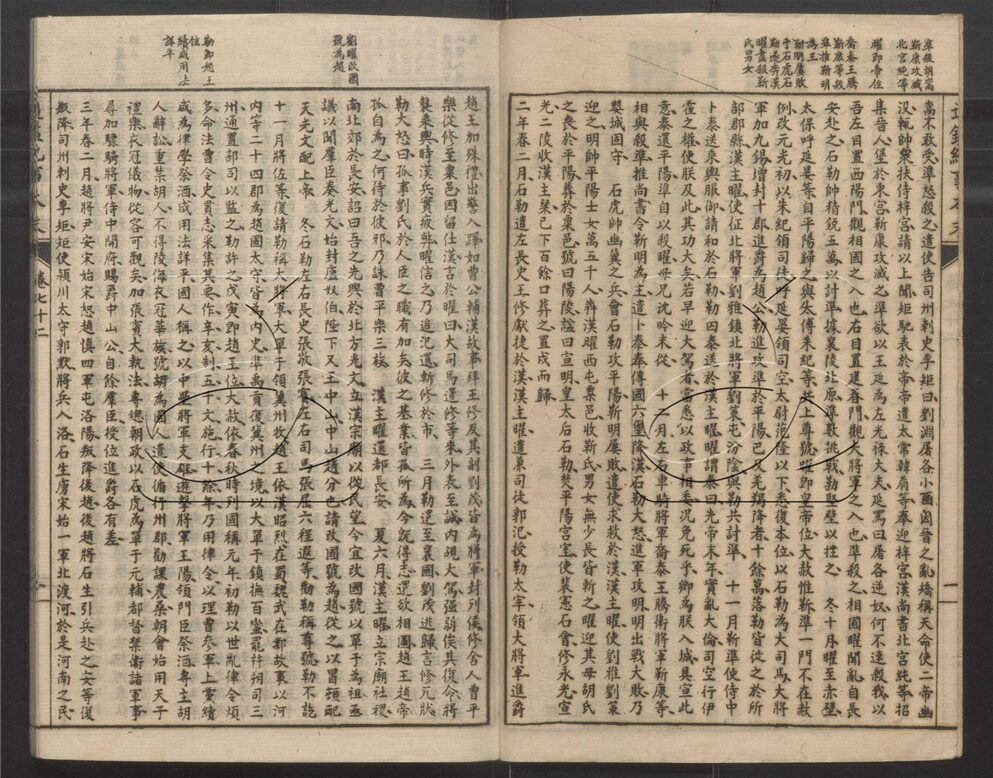 準殺胡嵩
靳康攻滅
北宮純等
曜即帝位
喬泰王騰
靳康等殺
準推靳明
為王
靳明屢敗
于石虎石
勒遂奔漢
曜盡殺靳
氏男女
嵩不敢受準怒殺之遣使告司州刺史李矩曰劉淵屠各小醜因晉之亂矯稱天命使二帝幽
沒輒帥衆扶侍梓宮請以上聞矩馳表於帝帝遣太常韓胤等奉迎梓宮漢尚書北宮純等招
集晉人堡於東宮靳康攻滅之準欲以王延為左光祿大夫延罵曰屠各逆奴何不速殺我以
吾左目置西陽門觀相國之入也右目置建春門觀大將軍之入也準殺之相國曜聞亂自長
安赴之石勒帥精銳五萬以討準據襄陵北原準數挑戰勒堅壁以挫之 冬十月曜至赤壁
太保呼延晏等自平陽歸之與太傅朱紀等共上尊號曜即皇帝位大赦惟靳準一門不在赦
例改元光初以朱紀領司徒呼延晏領司空太尉范隆以下悉復本位以石勒為大司馬大將
軍加九錫增封十郡進爵為趙公勒進攻準於平陽巴及羌羯降者十餘萬落勒皆徙之於所
部郡縣漢主曜使征北將軍劉雅鎮北將軍劉策屯汾陰與勒共討準 十一月靳準使侍中
卜泰送乘輿服御請和於石勒勒囚泰送於漢主曜曜謂泰曰先帝末年實亂大倫司空行伊
霍之權使朕及此其功大矣若早迎大駕者當悉以政事相委況免死乎卿為朕入城具宣此
意泰還平陽準自以殺曜母兄沈吟未從 十二月左右車騎將軍喬泰王騰衛將軍靳康等
相與殺準推尚書令靳明為主遣卜泰奉傳國六璽降漢石勒大怒進軍攻明明出戰大敗乃
嬰城固守 石虎帥幽冀之兵會石勒攻平陽靳明屢敗遣使求救於漢漢主曜使劉雅劉策
迎之明帥平陽士女萬五千人犇漢曜西屯粟邑收靳氏男女無少長皆斬之曜迎其母胡氏
之喪於平陽葬於粟邑號曰陽陵諡曰宣明皇太后石勒焚平陽宮室使裴憲石會修永光宣
光二陵收漢主粲已下百餘口葬之置戍而歸
二年春二月石勒遣左長史王修獻捷於漢漢主曜遣兼司徒郭汜授勒太宰領大將軍進爵
劉曜改國
號為趙
勒即趙王
位
續咸用法
詳平
趙王加殊禮出警入蹕如曹公輔漢故事拜王修及其副劉茂皆為將軍封列侯修舍人曹平
樂從修至粟邑因留仕漢言於曜曰大司馬遣修等來外表至誠內覘大駕强弱俟其復命將
襲乘輿時漢兵實疲弊曜信之乃追汜還斬修於市 三月勒還至襄國劉茂逃歸言修死狀
勒大怒曰孤事劉氏於人臣之職有加矣彼之基業皆孤所為今既得志還欲相圖趙王趙帝
孤自為之何待於彼邪乃誅曹平樂三族 漢主曜還都長安 夏六月漢主曜立宗廟社稷
南北郊於長安詔曰吾之先興於北方光文立漢宗廟以從民望今宜改國號以單于為祖亟
議以聞羣臣奏光文始封盧奴伯陛下又王中山中山趙分也請改國號為趙從之以冒頓配
天光文配上帝 冬石勒左右長史張敬張賓左右司馬張屈六程遐等勸勒稱尊號勒不許
十一月將佐等復請勒稱大將軍大單于領冀州牧趙王依漢昭烈在蜀魏武在鄴故事以河
內等二十四郡為趙國太守皆為內史準禹貢復冀州之境以大單于鎮撫百蠻罷并朔司三
州通置部司以監之勒許之戊寅即趙王位大赦依春秋時列國稱元年初勒以世亂律令煩
多命法曹令史貫志采集其要作辛亥制五千文施行十餘年乃用律令以理曹參軍上黨續
咸為律學祭酒咸用法詳平國人稱之以中壘將軍支雄遊擊將軍王陽領門臣祭酒專主胡
人辭訟重禁胡人不得陵侮衣冠華族號胡為國人遣使循行州郡勸課農桑朝會始用天子
禮樂衣冠儀物從容可觀矣加張賓大執法專總朝政以石虎為單于元輔都督禁衛諸軍事
尋加驃騎將軍侍中開府賜爵中山公自餘羣臣授位進爵各有差
三年春二月趙將尹安宋始宋恕趙慎四軍屯洛陽叛降後趙後趙將石生引兵赴之安等復
叛降司州刺史李矩矩使潁川太守郭默將兵入洛石生虜宋始一軍北渡河於是河南之民
卷七十二